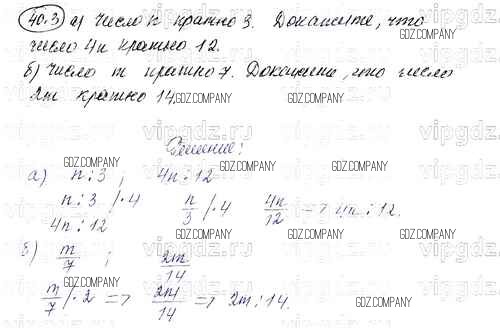 40.3 а) Число n кратно 3. Докажите, что
число 4n кратно 12.
б) Число m кратно 7. Докажите, что число
2m кратно 14.
Решение:
а) n⋮3 ; 4n⋮12
n⋮3 /·4 n/3 /·4 4n/12 => 4n⋮12.
4n⋮12
б) m/7 ; 2m/14
m/7 /·2 => 2m/14 => 2m⋮14.
GDZ.COMPANY
vipgdz.ru